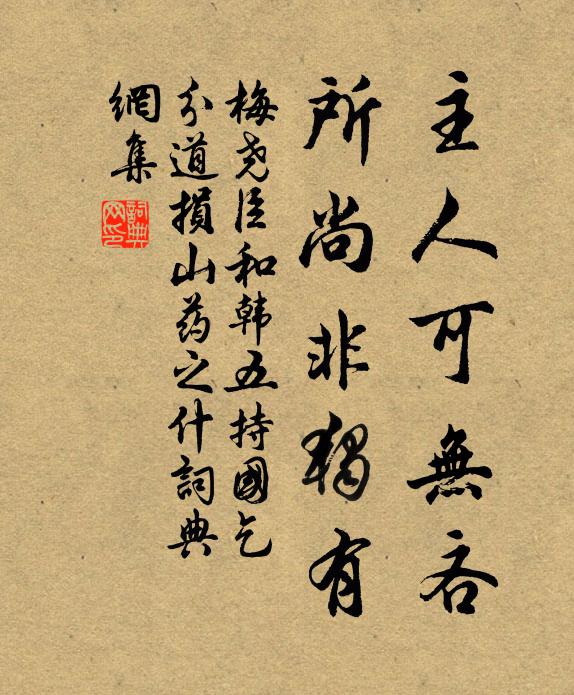 主人可無吝
所尚非獨有
梅尧臣和韩五持國乞
分道損山药之什詞典
網集
詞典
网印